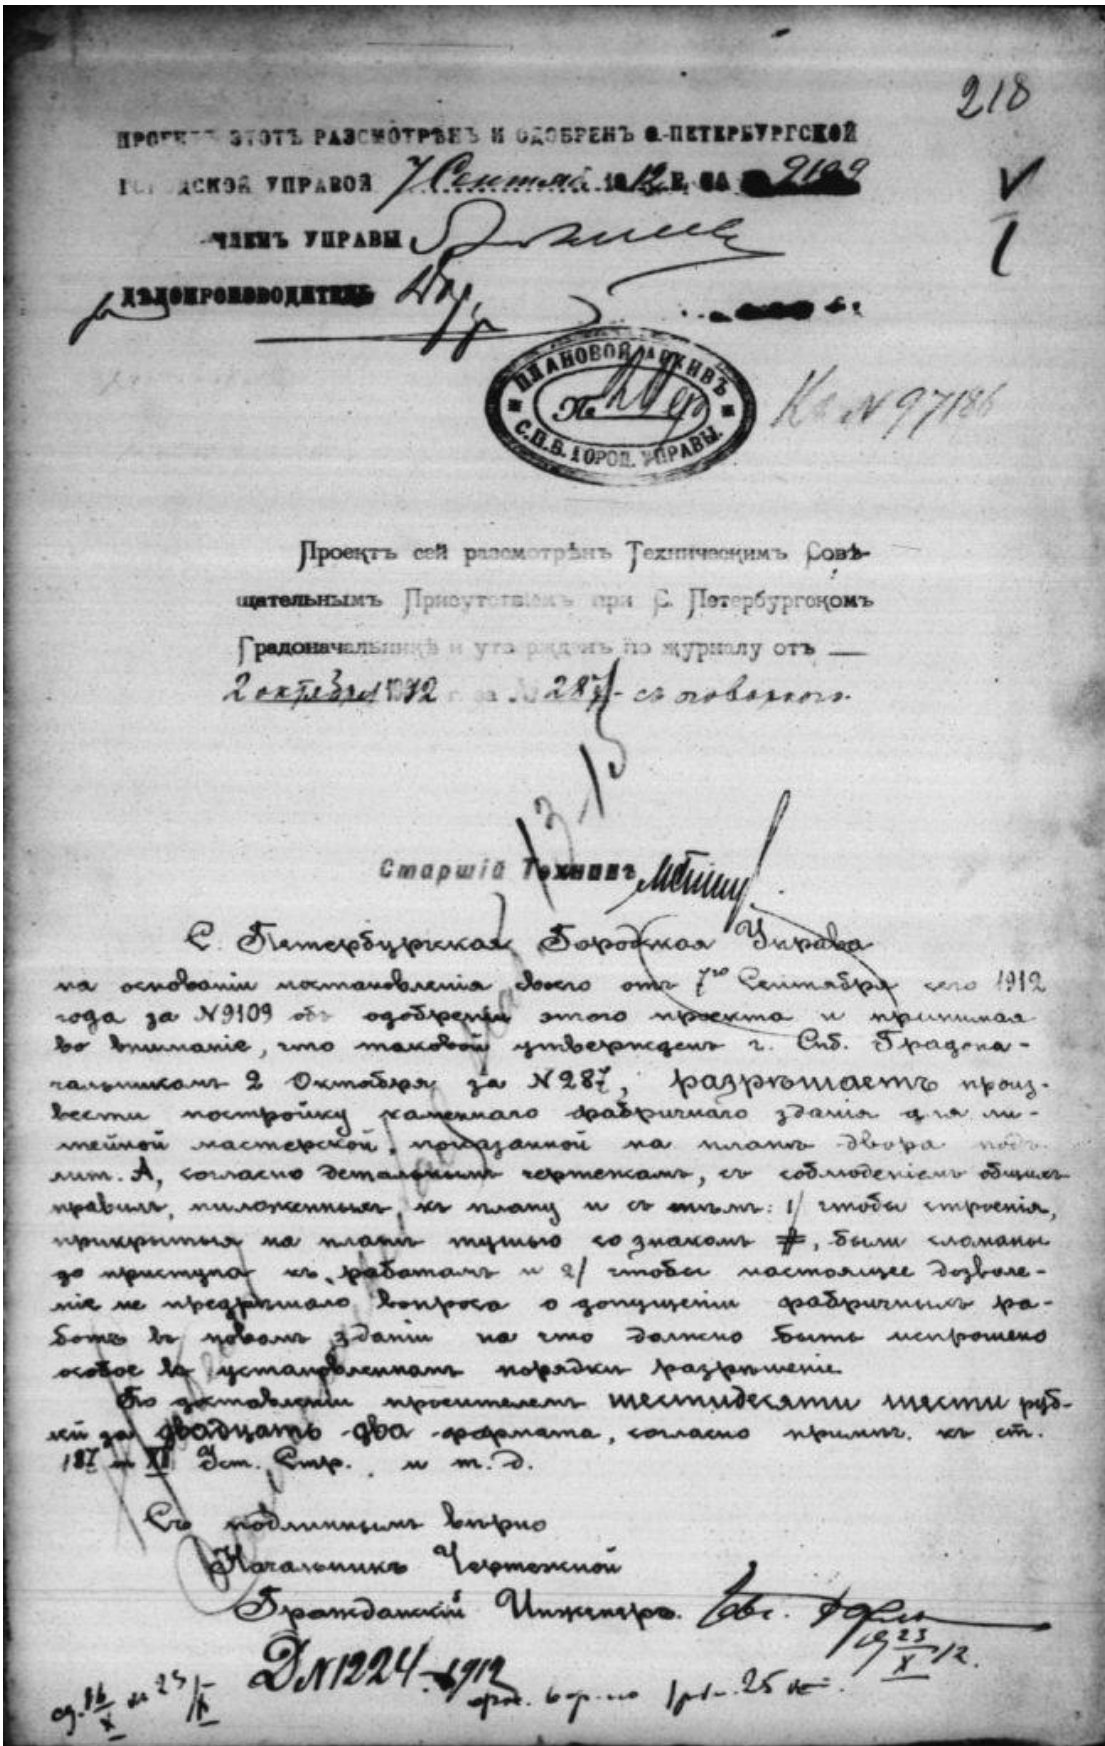 218
ПРОЕКТЪ ЭТОТЪ РАЗСМОТРѢНЪ И ОДОБРЕНЪ С.-ПЕТЕРБУРГСКОЙ
ГОРОДСКОЙ УПРАВОЙ 7 Сентября 1912 Г. ЗА № 9109
ЧЛЕНЪ УПРАВЫ
ДѢЛОПРОИЗВОДИТЕЛЬ
ПЛАНОВОЙ АРХИВЪ
№
С.П.Б. ГОРОД. УПРАВЫ.
Къ N 97186
Проектъ сей разсмотрѣнъ Техническимъ Совѣ-
щательнымъ Присутствіемъ при С. Петербургскомъ
Градоначальникѣ и утвержденъ по журналу отъ
2 октября 1912 г. за № 287
Старшій Техникъ
С. Петербургская Городская Управа
на основаніи постановленія своего отъ 7го Сентября сего 1912
года за N 9109 объ одобреніи этого проекта и принимая
во вниманіе, что таковой утвержденъ г. Спб. Градона-
чальникомъ 2 Октября за N 287, разрѣшаетъ произ-
вести постройку каменнаго фабричнаго зданія для ли-
тейной мастерской, показанной на планѣ двора подъ
лит. А, согласно детальнымъ чертежамъ, съ соблюденіемъ общихъ
правилъ, приложенныхъ къ плану и съ тѣмъ: 1/ чтобы строенія,
прикрытыя на планѣ тушью со знакомъ #, были сломаны
до приступа къ работамъ и 2/ чтобы настоящее дозволе-
ніе не предрѣшало вопроса о допущеніи фабричныхъ ра-
ботъ въ новомъ зданіи на что должно быть испрошено
особое въ установленномъ порядкѣ разрѣшеніе.
По доставленіи просителемъ шестидесяти шести руб-
лей за двадцать два формата, согласно примѣч. къ ст.
187 т XII Уст. Стр. и т. д.
Съ подлиннымъ вѣрно
Начальникъ Чертежной
Гражданскій Инженеръ.
23/X 12.
Д N 1224 - 1912
1 р. 25 к.